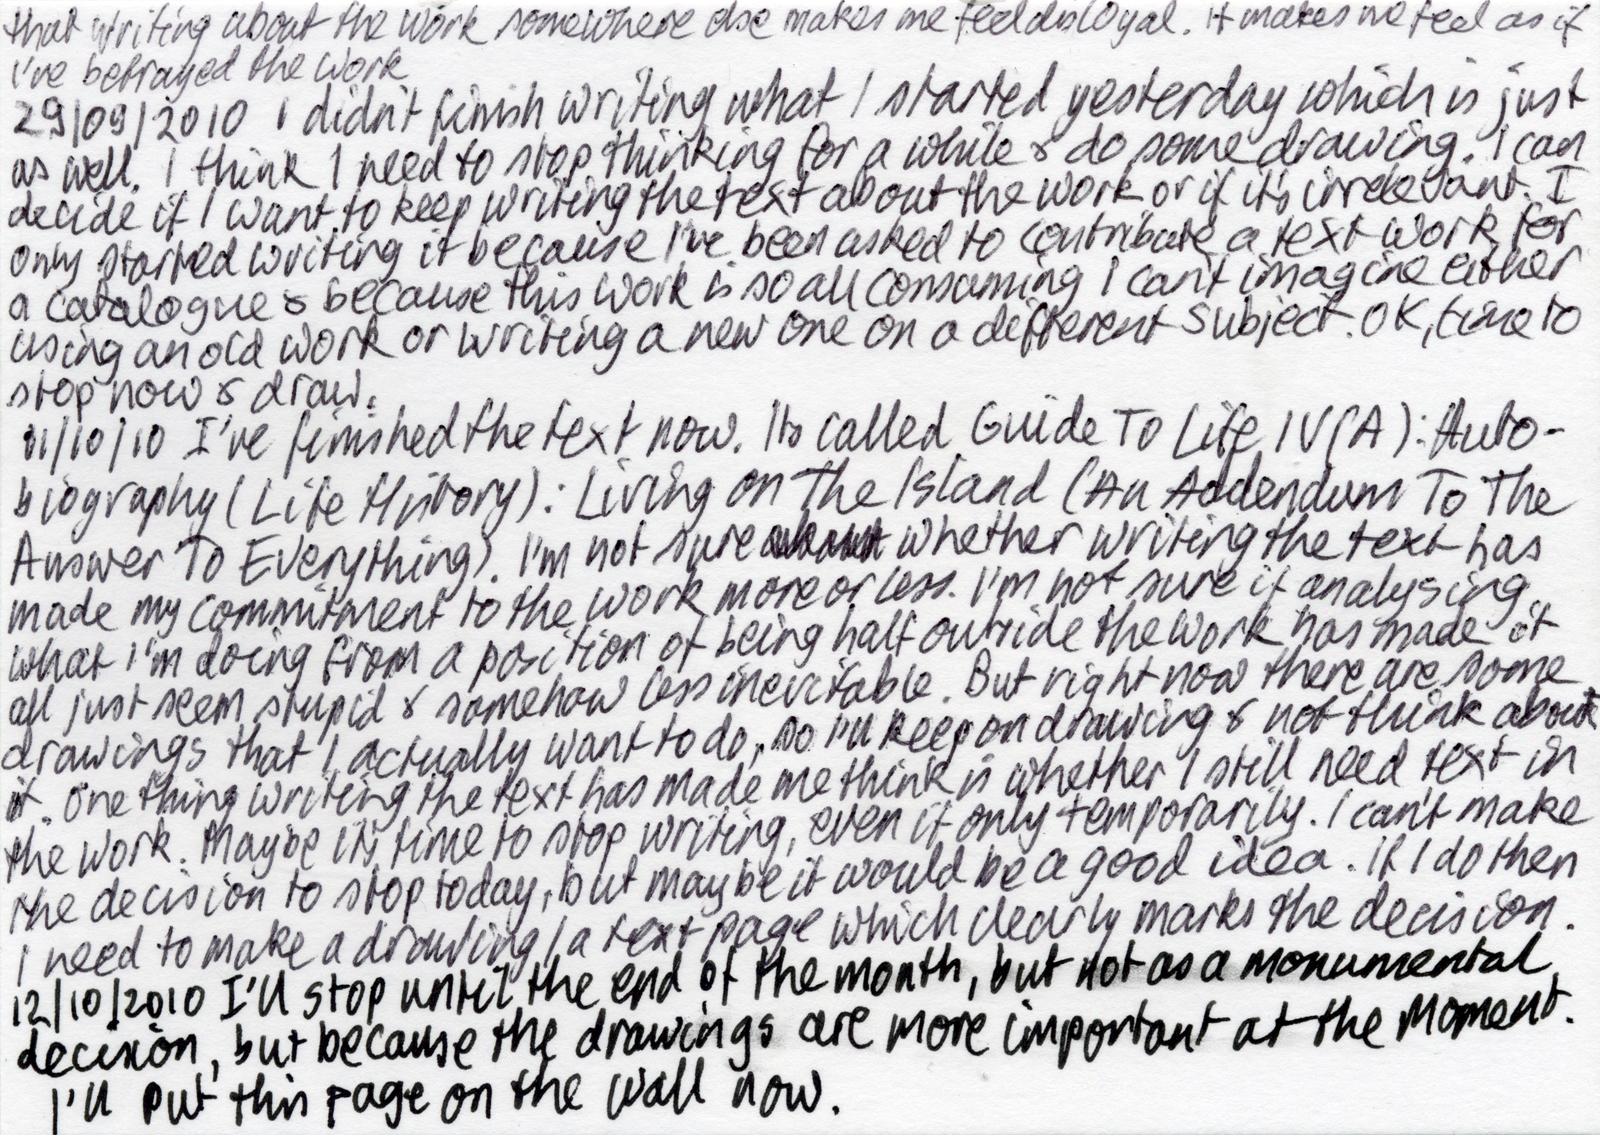 that writing about the work somewhere else makes me feel disloyal. It makes me feel as if
I've betrayed the work
29/09/2010 I didn't finish writing what I started yesterday which is just
as well. I think I need to stop thinking for a while & do some drawing. I can
decide if I want to keep writing the text about the work or if it's irrelevant. I
only started writing it because I've been asked to contribute a text work for
a catalogue & because this work is so all consuming I can't imagine either
using an old work or writing a new one on a different subject. OK, time to
stop now & draw.
11/10/10 I've finished the text now. Its called Guide To Life IV(A): Auto-
biography (Life History): Living on The Island (An Addendum To The
Answer To Everything). I'm not sure whether writing the text has
made my commitment to the work more or less. I'm not sure if analysing
what I'm doing from a position of being half outside the work has made it
all just seem stupid & somehow less inevitable. But right now there are some
drawings that I actually want to do, so I'll keep on drawing & not think about
it. One thing writing the text has made me think is whether I still need text in
the work. Maybe it's time to stop writing, even if only temporarily. I can't make
the decision to stop today, but maybe it would be a good idea. If I do then
I need to make a drawing/a text page which clearly marks the decision.
12/10/2010 I'll stop until the end of the month, but not as a monumental
decision, but because the drawings are more important at the moment.
I'll put this page on the wall now.